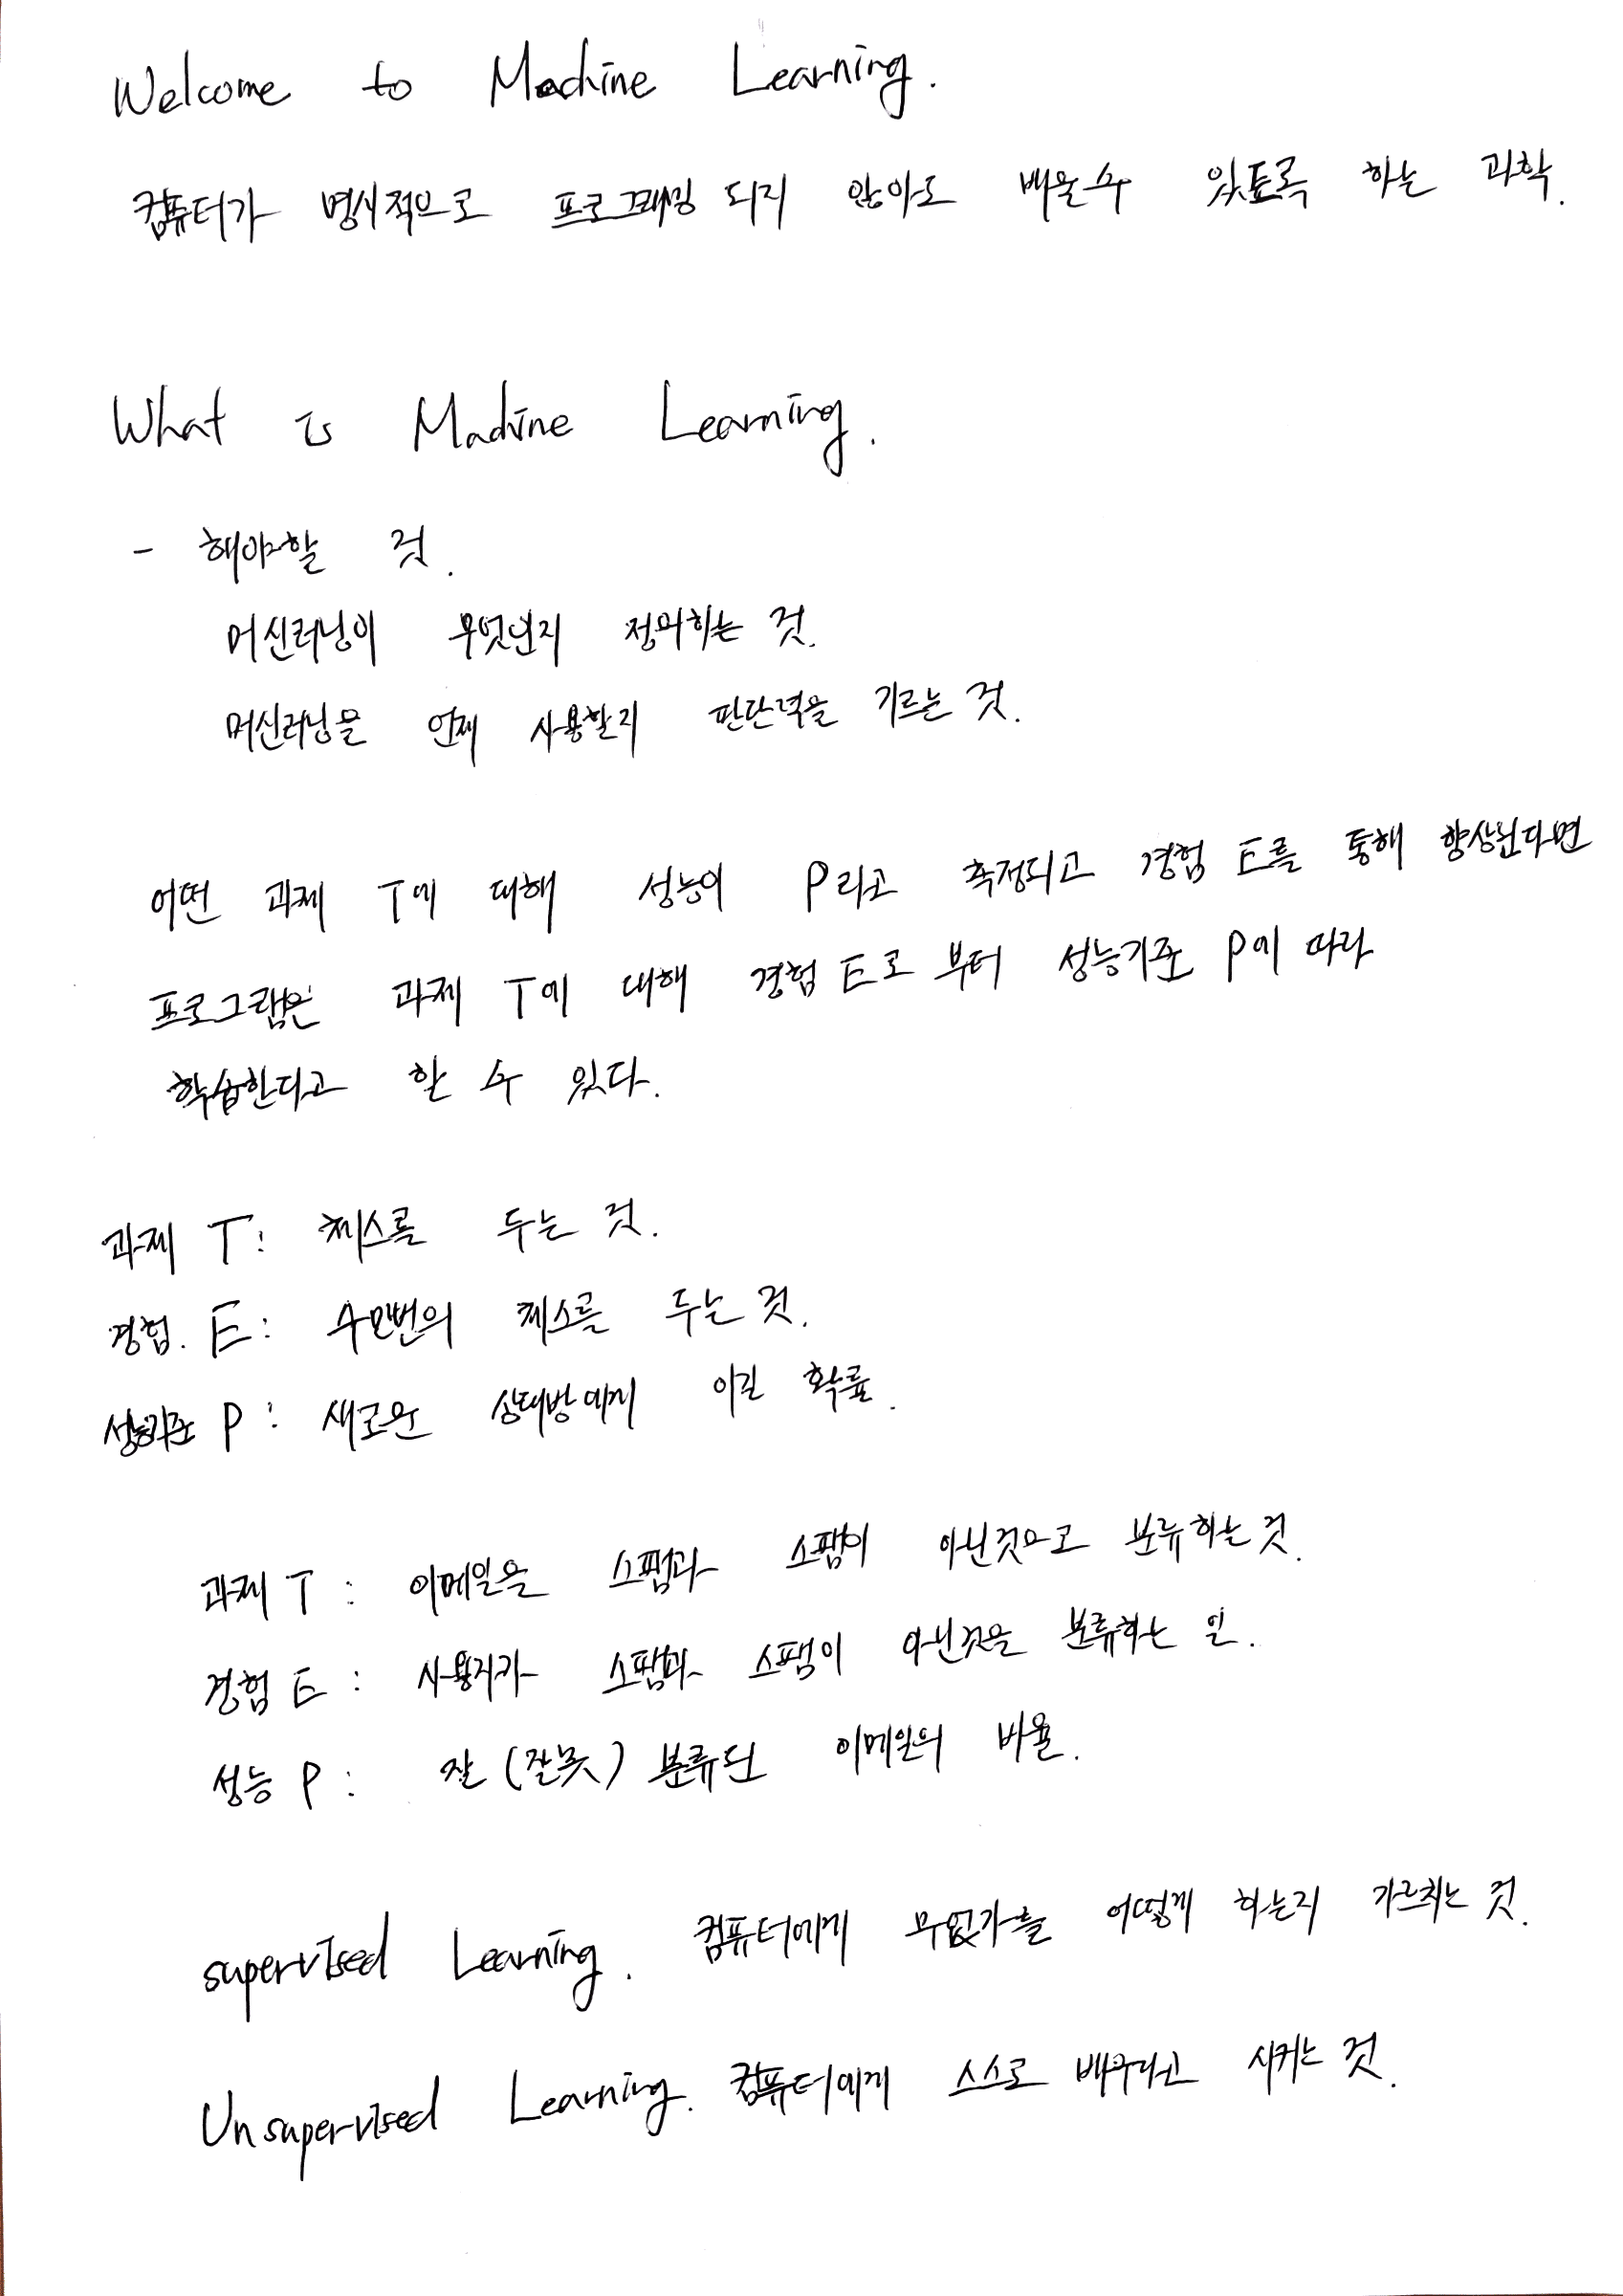 Welcome to Machine Learning.
컴퓨터가 명시적으로 프로그래밍 되지 않아도 배울수 있도록 하는 과학.
What is Machine Learning.
- 해야할 것.
머신러닝이 무엇인지 정의하는 것.
머신러닝을 언제 사용할지 판단력을 기르는 것.
어떤 과제 T에 대해 성능이 P라고 측정되고 경험 E를 통해 향상된다면
프로그램은 과제 T에 대해 경험 E로 부터 성능기준 P에 따라
학습한다고 할 수 있다.
과제 T: 체스를 두는 것.
경험. E: 수만번의 체스를 두는 것.
성능기준 P: 새로운 상대방에게 이길 확률.
과제 T: 이메일을 스팸과 스팸이 아닌것으로 분류하는 것.
경험 E: 사용자가 스팸과 스팸이 아닌것을 분류하는 일.
성능 P: 잘 (잘못) 분류된 이메일의 비율.
supervised Learning. 컴퓨터에게 무엇가를 어떻게 하는지 가르치는 것.
Unsupervised Learning. 컴퓨터에게 스스로 배우라고 시키는 것.